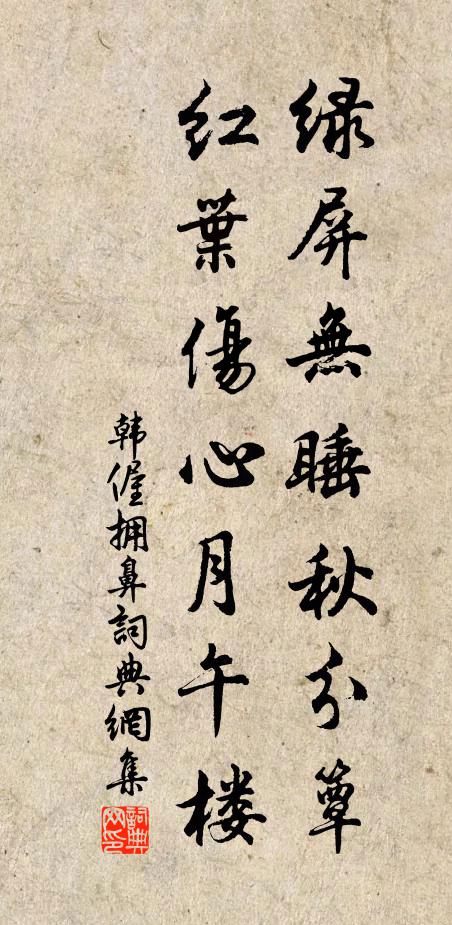 绿屏無睡秋分簟
红葉傷心月午楼
韩偓拥鼻詞典網集
詞典网印